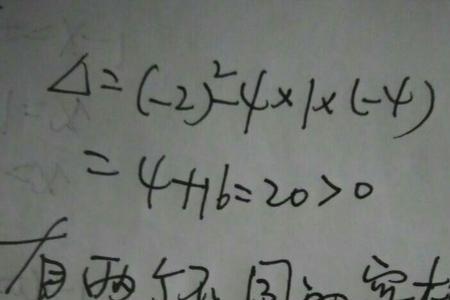 △=(-2)²-4×1×(-4)
=4+16=20>0
有两个不同的实